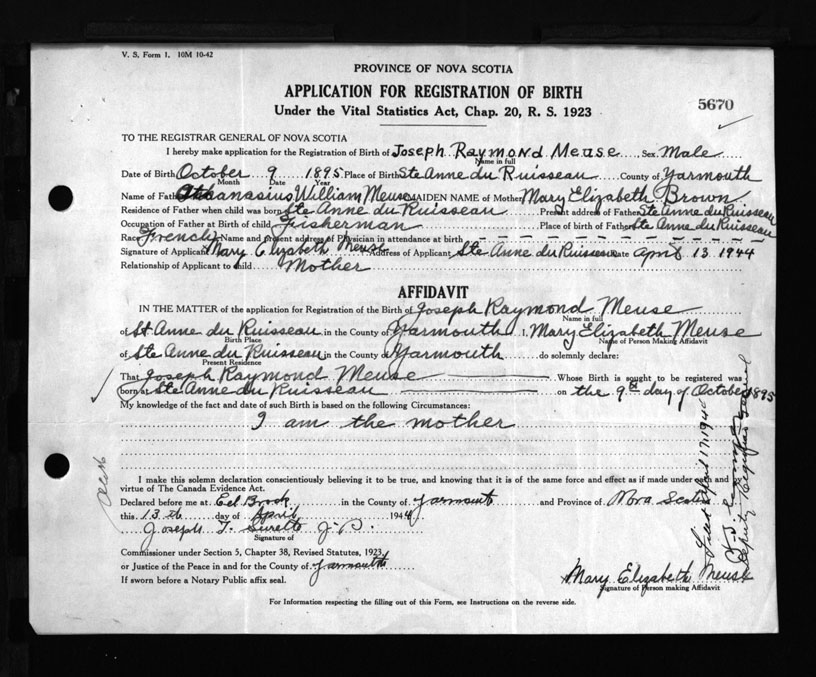 V. S. Form 1. 10M 10-42
PROVINCE OF NOVA SCOTIA
APPLICATION FOR REGISTRATION OF BIRTH
5670
Under the Vital Statistics Act, Chap. 20, R. S. 1923
TO THE REGISTRAR GENERAL OF NOVA SCOTIA
I hereby make application for the Registration of Birth of Joseph Raymond Meuse Sex Male
Name in full
Date of Birth October 9 1895 Place of Birth Ste Anne du Ruisseau County of Yarmouth
Month Date Year
Name of Father Athanasius William Meuse MAIDEN NAME of Mother Mary Elizabeth Brown
Residence of Father when child was born Ste Anne du Ruisseau Present address of Father Ste Anne du Ruisseau
Occupation of Father at Birth of child Fisherman Place of birth of Father Ste Anne du Ruisseau
Race French Name and present address of Physician in attendance at birth
Signature of Applicant Mary Elizabeth Meuse Address of Applicant Ste Anne du Ruisseau Date April 13 1944
Relationship of Applicant to child Mother
AFFIDAVIT
IN THE MATTER of the application for Registration of the Birth of Joseph Raymond Meuse
Name in full
of St Anne du Ruisseau in the County of Yarmouth I, Mary Elizabeth Meuse
Birth Place Name of Person Making Affidavit
of Ste Anne du Ruisseau in the County of Yarmouth do solemnly declare:
Present Residence
That Joseph Raymond Meuse Whose Birth is sought to be registered was
born at Ste Anne du Ruisseau on the 9th day of October 1895
My knowledge of the fact and date of such Birth is based on the following Circumstances:
I am the mother
I make this solemn declaration conscientiously believing it to be true, and knowing that it is of the same force and effect as if made under oath and
virtue of The Canada Evidence Act.
Declared before me at Eel Brook in the County of Yarmouth and Province of Nova Scotia
this 13th day of April 1944
Joseph T. Surette J.P.
Signature of
Commissioner under Section 5, Chapter 38, Revised Statutes, 1923
or Justice of the Peace in and for the County of Yarmouth
If sworn before a Notary Public affix seal.
Mary Elizabeth Meuse
Signature of Person making Affidavit
For Information respecting the filling out of this Form, see Instructions on the reverse side.
Filed April 17, 1944
Deputy Registrar General